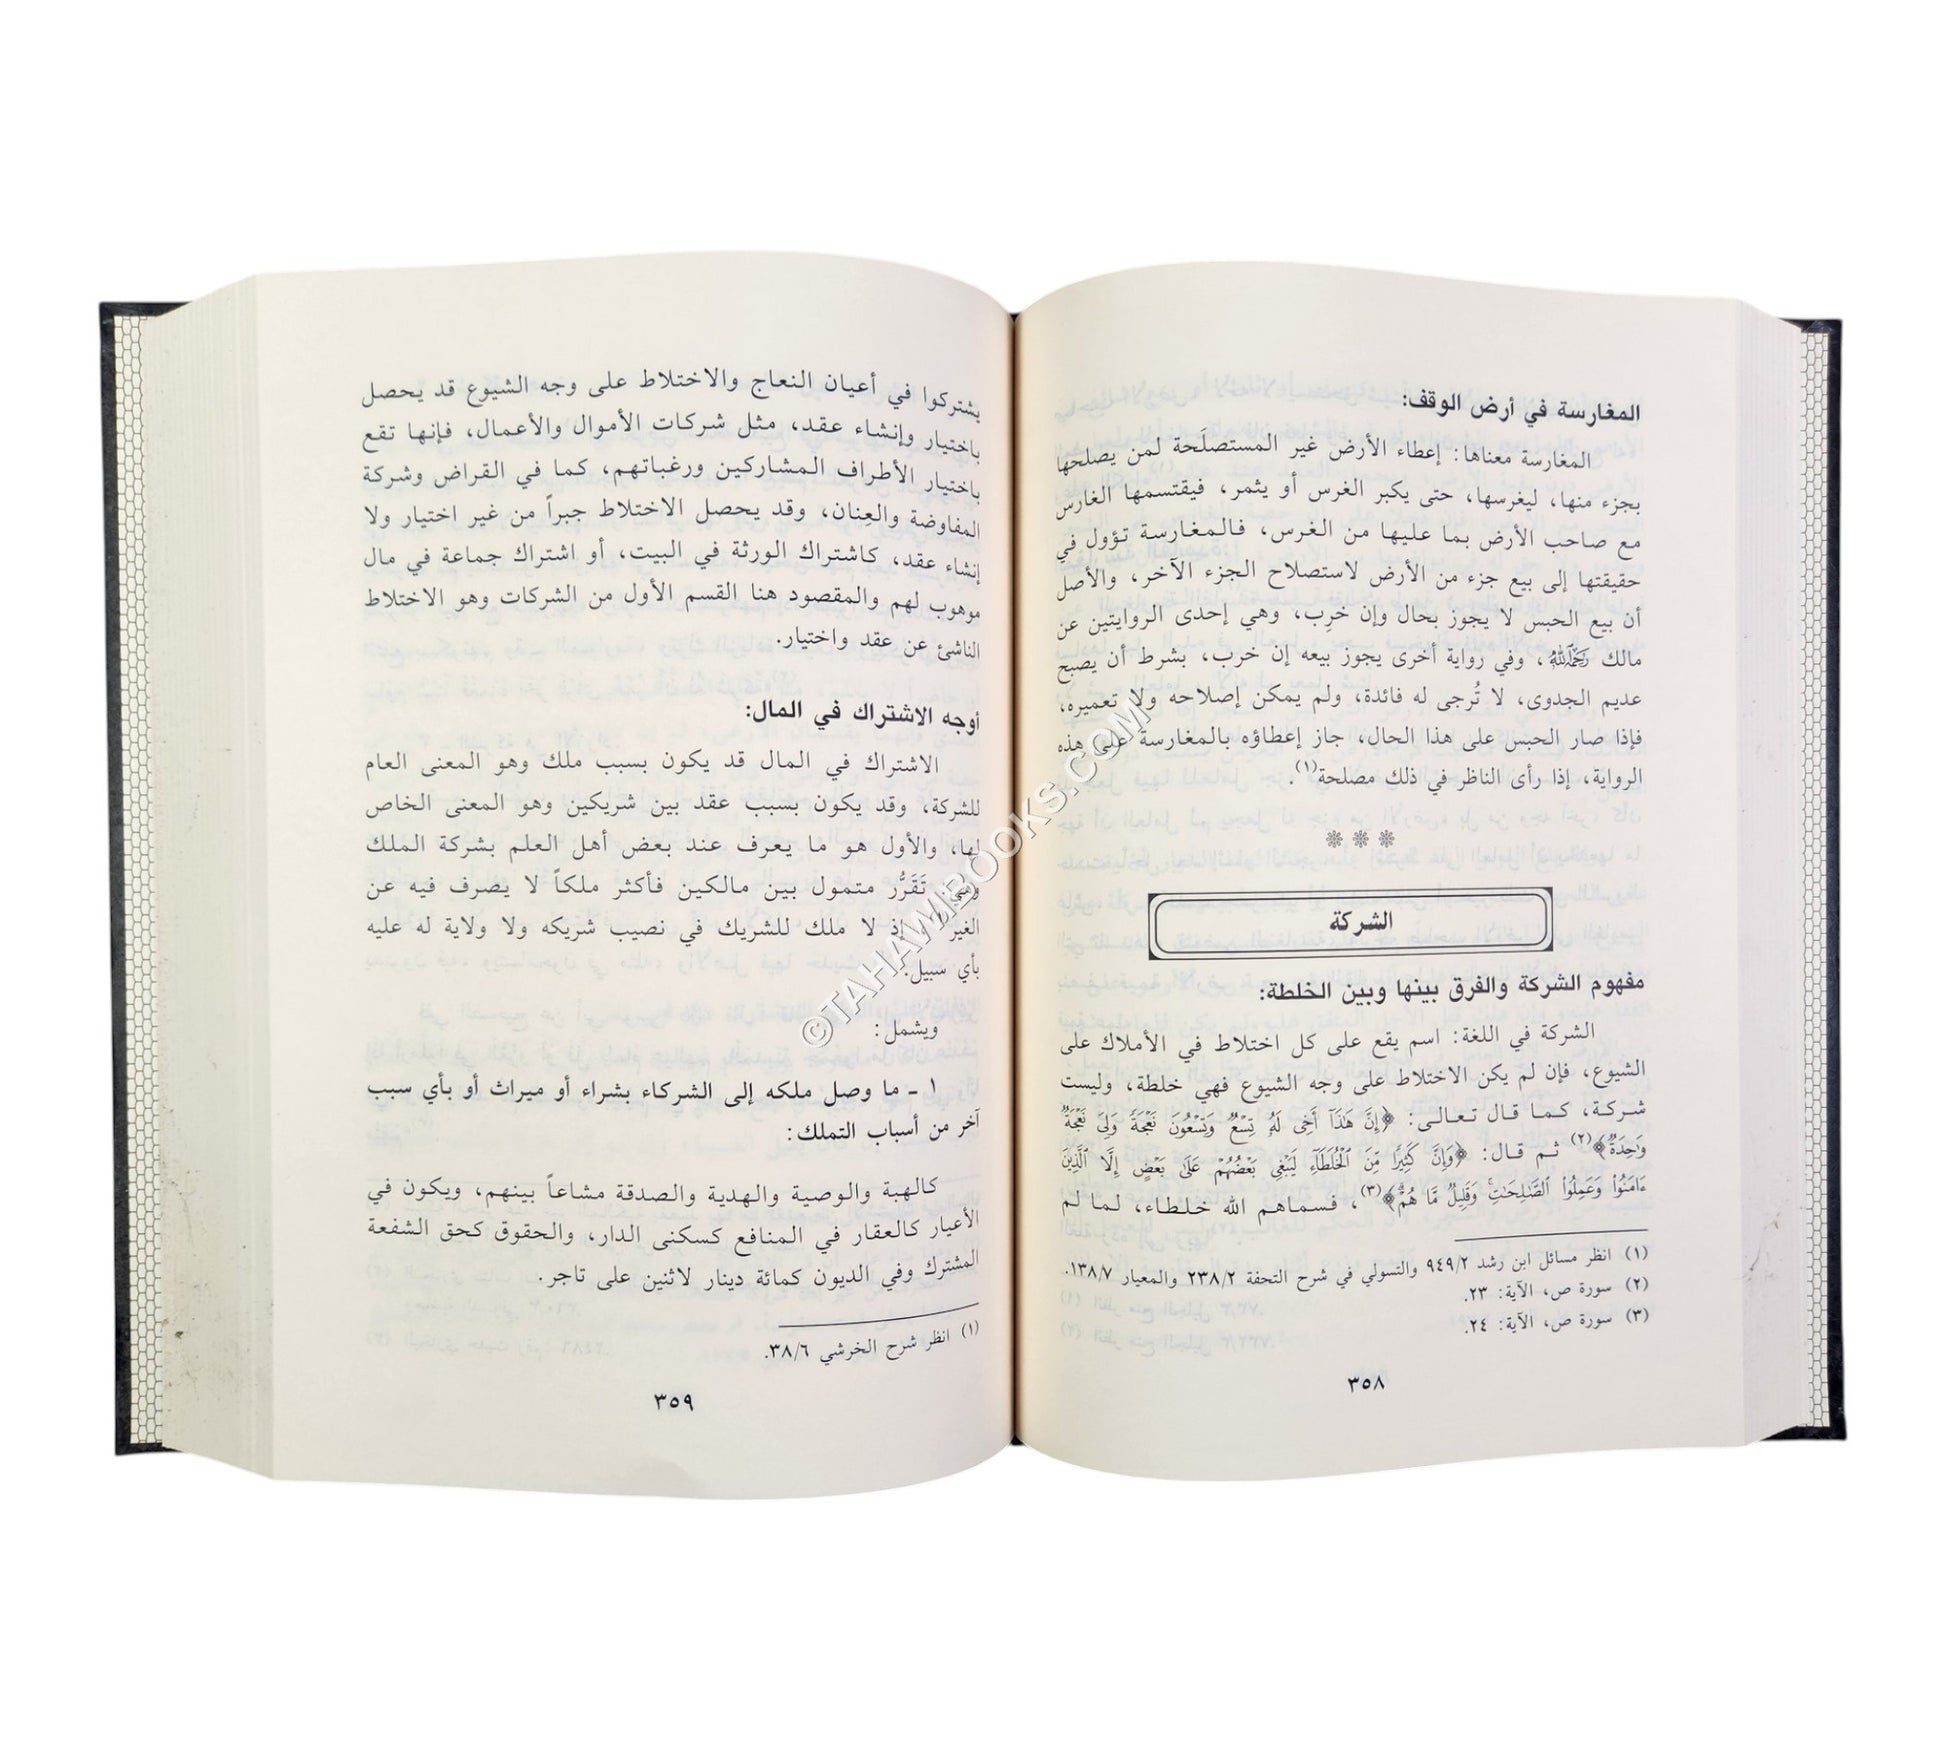 المغارسة في أرض الوقف:
المغارسة معناها: إعطاء الأرض غير المستصلَحة لمن يصلحها
بجزء منها، ليغرسها، حتى يكبر الغرس أو يثمر، فيقتسمها الغارس
مع صاحب الأرض بما عليها من الغرس، فالمغارسة تؤول في
حقيقتها إلى بيع جزء من الأرض لاستصلاح الجزء الآخر، والأصل
أن بيع الحبس لا يجوز بحال وإن خرِب، وهي إحدى الروايتين عن
مالك رَحِمَهُ اللهُ، وفي رواية أخرى يجوز بيعه إن خرب، بشرط أن يصبح
عديم الجدوى، لا تُرجى له فائدة، ولم يمكن إصلاحه ولا تعميره،
فإذا صار الحبس على هذا الحال، جاز إعطاؤه بالمغارسة على هذه
الرواية، إذا رأى الناظر في ذلك مصلحة(١).
الشركة
مفهوم الشركة والفرق بينها وبين الخلطة:
الشركة في اللغة: اسم يقع على كل اختلاط في الأملاك على
الشيوع، فإن لم يكن الاختلاط على وجه الشيوع فهي خلطة، وليست
شركة، كما قال تعالى: ﴿إِنَّ هَٰذَآ أَخِى لَهُۥ تِسْعٌ وَتِسْعُونَ نَعْجَةً وَلِىَ نَعْجَةٌ
وَٰحِدَةٌ﴾(٢) ثم قال: ﴿وَإِنَّ كَثِيرًا مِّنَ ٱلْخُلَطَآءِ لَيَبْغِى بَعْضُهُمْ عَلَىٰ بَعْضٍ إِلَّا ٱلَّذِينَ
ءَامَنُوا۟ وَعَمِلُوا۟ ٱلصَّٰلِحَٰتِ وَقَلِيلٌ مَّا هُمْ﴾(٣)، فسماهم الله خلطاء، لما لم
(١) انظر مسائل ابن رشد ٩٤٩/٢ والتسولي في شرح التحفة ٢٣٨/٢ والمعيار ١٣٨/٧.
(٢) سورة ص، الآية: ٢٣.
(٣) سورة ص، الآية: ٢٤.
٣٥٨
يشتركوا في أعيان النعاج والاختلاط على وجه الشيوع قد يحصل
باختيار وإنشاء عقد، مثل شركات الأموال والأعمال، فإنها تقع
باختيار الأطراف المشاركين ورغباتهم، كما في القراض وشركة
المفاوضة والعِنان، وقد يحصل الاختلاط جبراً من غير اختيار ولا
إنشاء عقد، كاشتراك الورثة في البيت، أو اشتراك جماعة في مال
موهوب لهم والمقصود هنا القسم الأول من الشركات وهو الاختلاط
الناشئ عن عقد واختيار.
أوجه الاشتراك في المال:
الاشتراك في المال قد يكون بسبب ملك وهو المعنى العام
للشركة، وقد يكون بسبب عقد بين شريكين وهو المعنى الخاص
لها، والأول هو ما يعرف عند بعض أهل العلم بشركة الملك
وهي: تَقَرُّر متمول بين مالكين فأكثر ملكاً لا يصرف فيه عن
الغير إذ لا ملك للشريك في نصيب شريكه ولا ولاية له عليه
بأي سبيل.
ويشمل:
١ ـ ما وصل ملكه إلى الشركاء بشراء أو ميراث أو بأي سبب
آخر من أسباب التملك:
كالهبة والوصية والهدية والصدقة مشاعاً بينهم، ويكون في
الأعيار كالعقار في المنافع كسكنى الدار، والحقوق كحق الشفعة
المشترك وفي الديون كمائة دينار لاثنين على تاجر.
(١) انظر شرح الخرشي ٣٨/٦.
٣٥٩
©TAHAWIBOOKS.COM